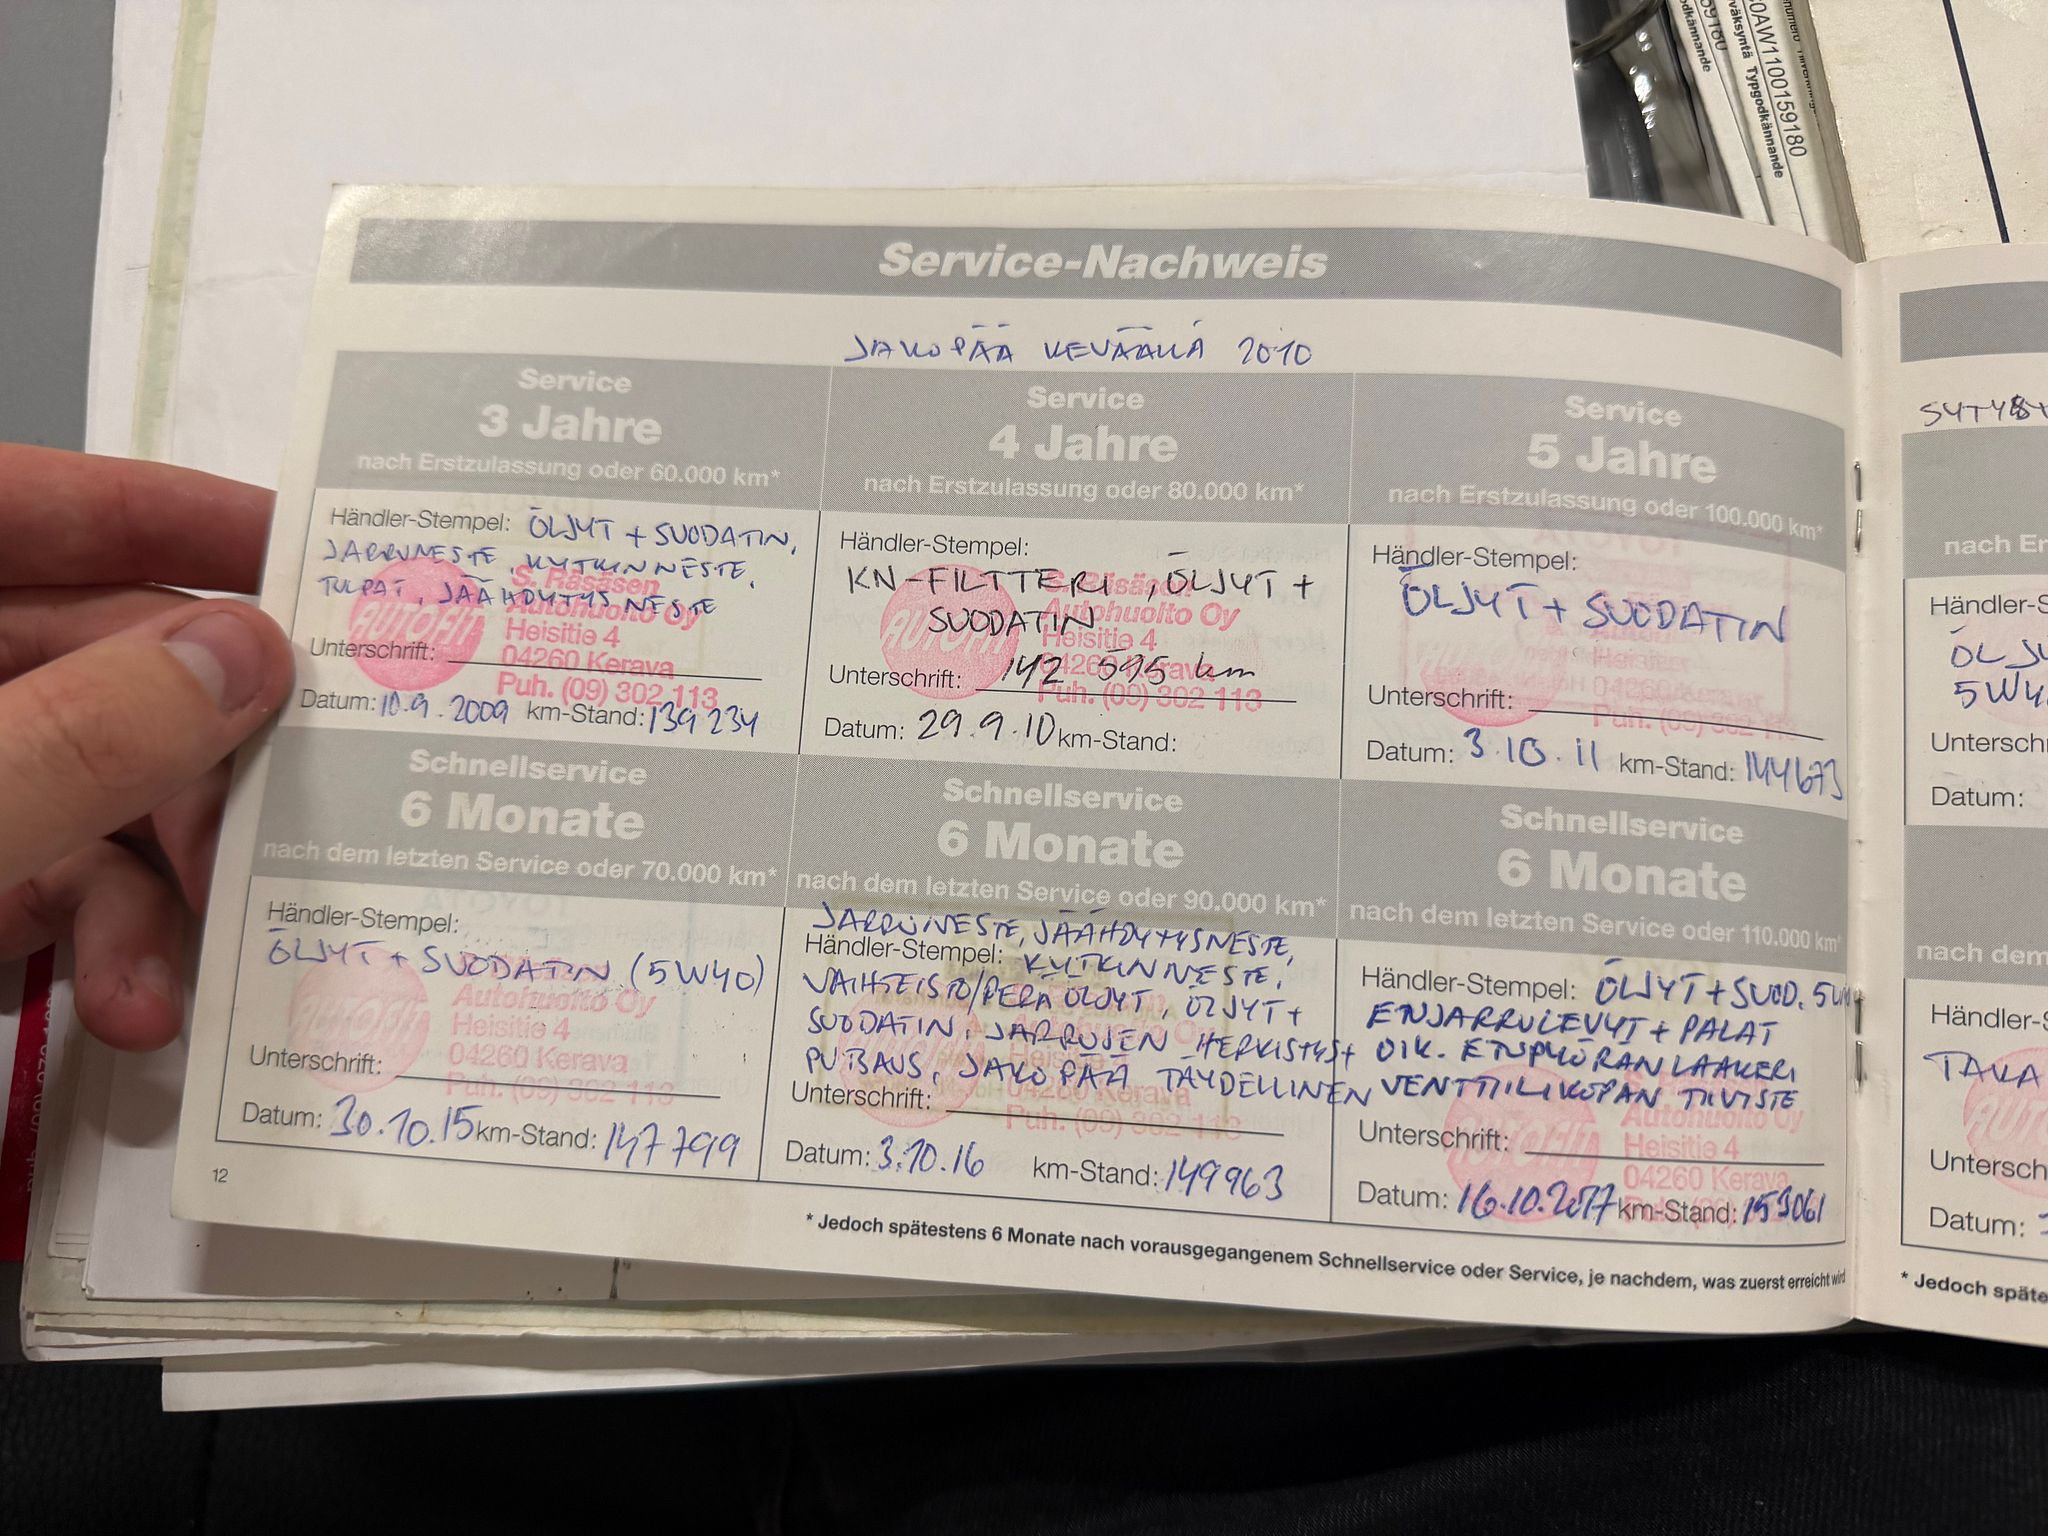 Service-Nachweis
JAKOPÄÄ KEVÄÄLLÄ 2010
Service
3 Jahre
nach Erstzulassung oder 60.000 km*
Händler-Stempel: ÖLJYT + SUODATIN,
JARRUNESTE, KYTKINNESTE,
TULPAT, JÄÄHDYTYSNESTE
AUTOFIT
S. Räsäsen
Autohuolto Oy
Heisitie 4
04260 Kerava
Puh. (09) 302 113
Unterschrift:
Datum: 10.9.2009 km-Stand: 139 234
Service
4 Jahre
nach Erstzulassung oder 80.000 km*
Händler-Stempel:
KN-FILTTERI, ÖLJYT +
SUODATIN
AUTOFIT
S. Räsäsen
Autohuolto Oy
Heisitie 4
04260 Kerava
Puh. (09) 302 113
Unterschrift: 142 595 km
Datum: 29.9.10 km-Stand:
Service
5 Jahre
nach Erstzulassung oder 100.000 km*
Händler-Stempel:
ÖLJYT + SUODATIN
Unterschrift:
Datum: 3.10.11 km-Stand: 144673
Schnellservice
6 Monate
nach dem letzten Service oder 70.000 km*
Händler-Stempel:
ÖLJYT + SUODATIN (5W40)
AUTOFIT
Autohuolto Oy
Heisitie 4
04260 Kerava
Puh. (09) 302 113
Unterschrift:
Datum: 30.10.15 km-Stand: 147799
Schnellservice
6 Monate
nach dem letzten Service oder 90.000 km*
JARRUNESTE, JÄÄHDYTYSNESTE,
Händler-Stempel: KYTKINNESTE,
VAIHTEISTO/PERÄ ÖLJYT, ÖLJYT +
SUODATIN, JARRUJEN HERKISTYS+
PUTSAUS, JAKOPÄÄ TÄYDELLINEN
04260 Kerava
Puh. (09) 302 113
Unterschrift:
Datum: 3.10.16 km-Stand: 149963
Schnellservice
6 Monate
nach dem letzten Service oder 110.000 km*
Händler-Stempel: ÖLJYT + SUOD.
ETUJARRULEVYT + PALAT
OIK. ETUPYÖRÄN LAAKERI
VENTTIILIKOPAN TIIVISTE
AUTOFIT
Autohuolto Oy
Heisitie 4
04260 Kerava
Unterschrift:
Datum: 16.10.2017 km-Stand: 153061
12
* Jedoch spätestens 6 Monate nach vorausgegangenem Schnellservice oder Service, je nachdem, was zuerst erreicht wird
nach Er
Händler-S
ÖLJY
5W4
Unterschr
Datum:
nach dem
Händler-S
TAKA
Untersch
Datum:
* Jedoch späte
0AW1100159180
Typgodkännande